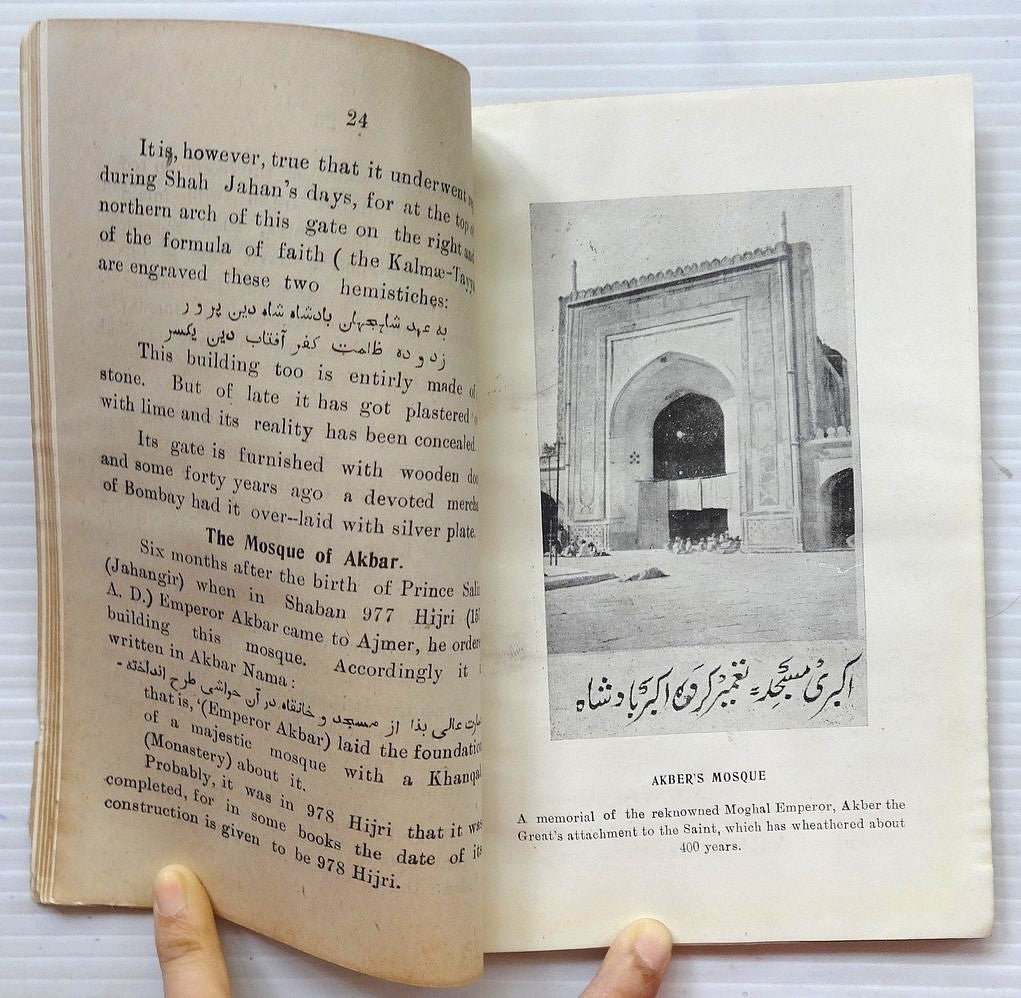 24
It is, however, true that it underwent
during Shah Jahan's days, for at the top
northern arch of this gate on the right and
of the formula of faith ( the Kalmæ-Tayy
are engraved these two hemistiches:
به عهد شاہجہان بادشاہ شاہ دین پرور
زدودہ ظلمت کفر آفتاب دین یکسر
This building too is entirly made of
stone. But of late it has got plastered
with lime and its reality has been concealed.
Its gate is furnished with wooden do
and some forty years ago a devoted mercha
of Bombay had it over--laid with silver plate.
The Mosque of Akbar.
Six months after the birth of Prince Sali
(Jahangir) when in Shaban 977 Hijri (15
A. D.) Emperor Akbar came to Ajmer, he order
building this mosque. Accordingly it
written in Akbar Nama:
عالی بذا از مسجد و خانقاہ در آن حواشی طرح انداختہ -
that is, '(Emperor Akbar) laid the foundatio
of a majestic mosque with a Khanqa
(Monastery) about it.
Probably, it was in 978 Hijri that it was
completed, for in some books the date of its
construction is given to be 978 Hijri.
اکبری مسجد تعمیر کردہ اکبر بادشاہ
AKBER'S MOSQUE
A memorial of the reknowned Moghal Emperor, Akber the
Great's attachment to the Saint, which has wheathered about
400 years.